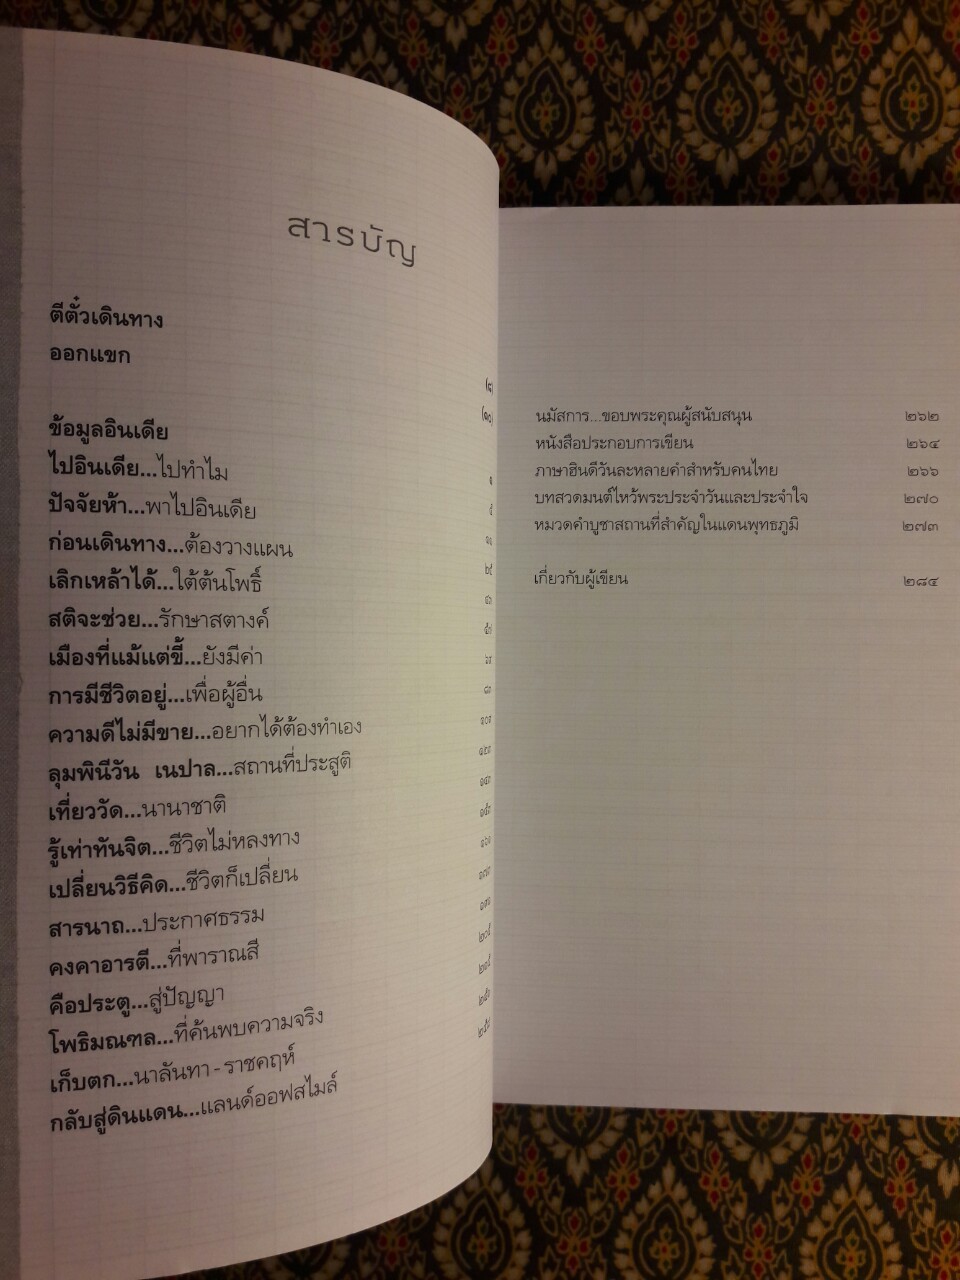 สารบัญ
ตีตั๋วเดินทาง
ออกแขก
ข้อมูลอินเดีย
ไปอินเดีย...ไปทำไม
ปัจจัยห้า...พาไปอินเดีย
ก่อนเดินทาง...ต้องวางแผน
เลิกเหล้าได้...ใต้ต้นโพธิ์
สติจะช่วย...รักษาสตางค์
เมืองที่แม้แต่ขี้...ยังมีค่า
การมีชีวิตอยู่...เพื่อผู้อื่น
ความดีไม่มีขาย...อยากได้ต้องทำเอง
ลุมพินีวัน เนปาล...สถานที่ประสูติ
เที่ยววัด...นานาชาติ
รู้เท่าทันจิต...ชีวิตไม่หลงทาง
เปลี่ยนวิธีคิด...ชีวิตก็เปลี่ยน
สารนาถ...ประกาศธรรม
คงคาอารตี...ที่พาราณสี
คือประตู...สู่ปัญญา
โพธิมณฑล...ที่ค้นพบความจริง
เก็บตก...นาลันทา - ราชคฤห์
กลับสู่ดินแดน...แลนด์ออฟสไมล์
นมัสการ...ขอบพระคุณผู้สนับสนุน ๒๖๒
หนังสือประกอบการเขียน ๒๖๔
ภาษาฮินดีวันละหลายคำสำหรับคนไทย ๒๖๖
บทสวดมนต์ไหว้พระประจำวันและประจำใจ ๒๗๐
หมวดคำบูชาสถานที่สำคัญในแดนพุทธภูมิ ๒๗๓
เกี่ยวกับผู้เขียน ๒๘๔